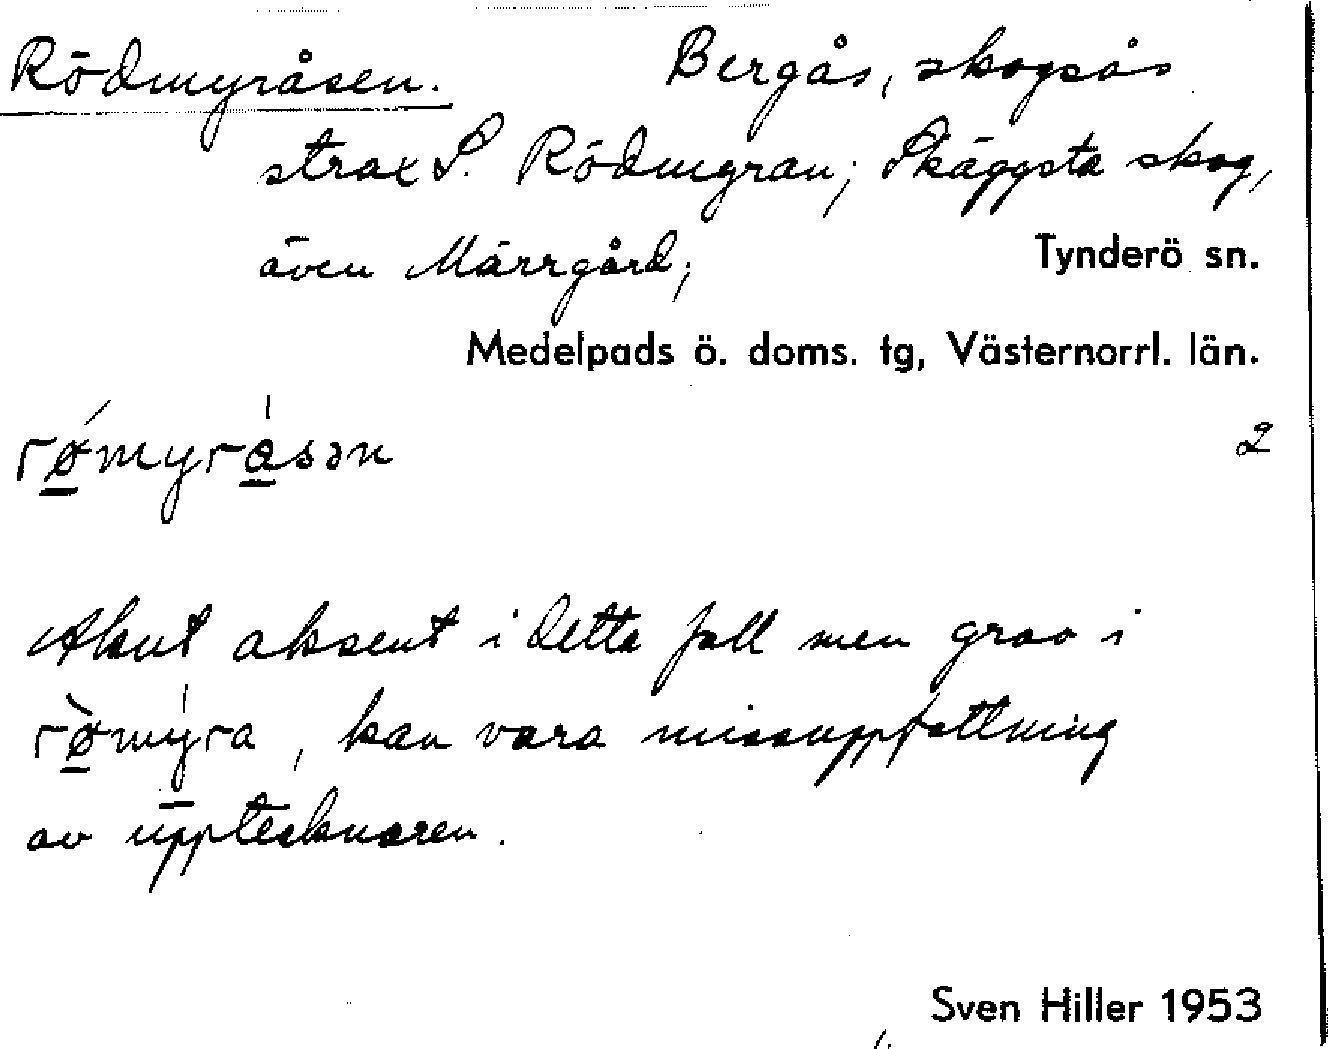 Rödmyråsen. Bergås, skogsås
strax S. Rödmyran; Skäggsta skog,
även Märrgård; Tynderö sn.
Medelpads ö. doms. tg, Västernorrl. län.
rǿmyrå̍sən 2
Akut aksent i detta fall men grav i
rø̀my̍ra, kan vara missuppfattning
av upptecknaren.
Sven Hiller 1953